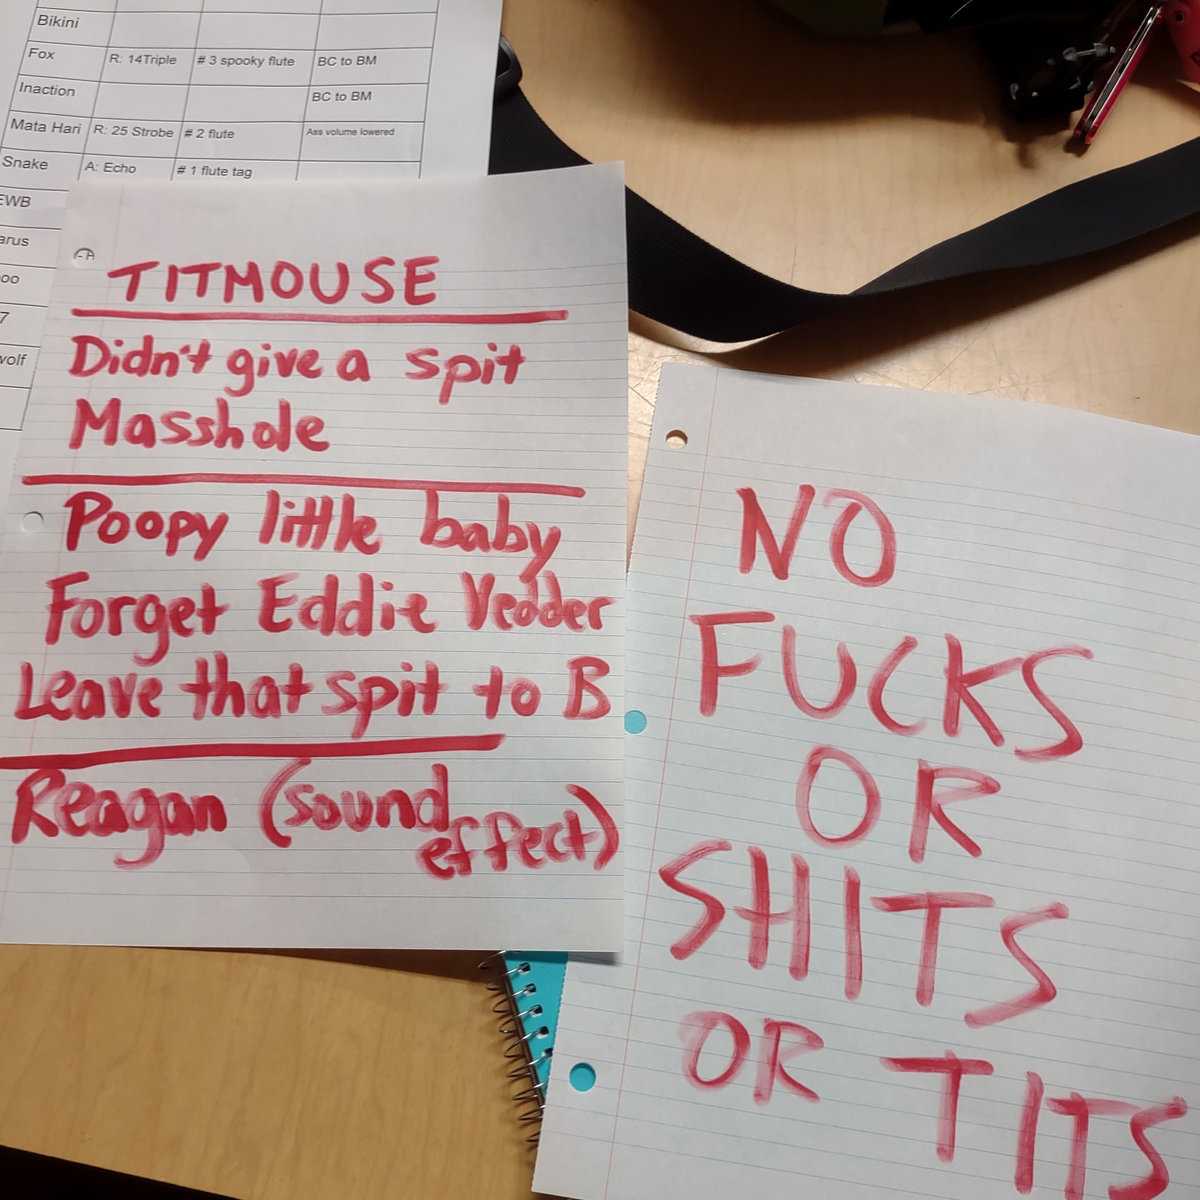 Bikini
Fox R: 14Triple # 3 spooky flute BC to BM
Inaction BC to BM
Mata Hari R: 25 Strobe # 2 flute Ass volume lowered
Snake A: Echo # 1 flute tag
EWB
arus
oo
7
wolf
TITMOUSE
Didn't give a spit
Masshole
Poopy little baby
Forget Eddie Vedder
Leave that spit to B
Reagan (sound
effect)
NO
FUCKS
OR
SHITS
OR TITS